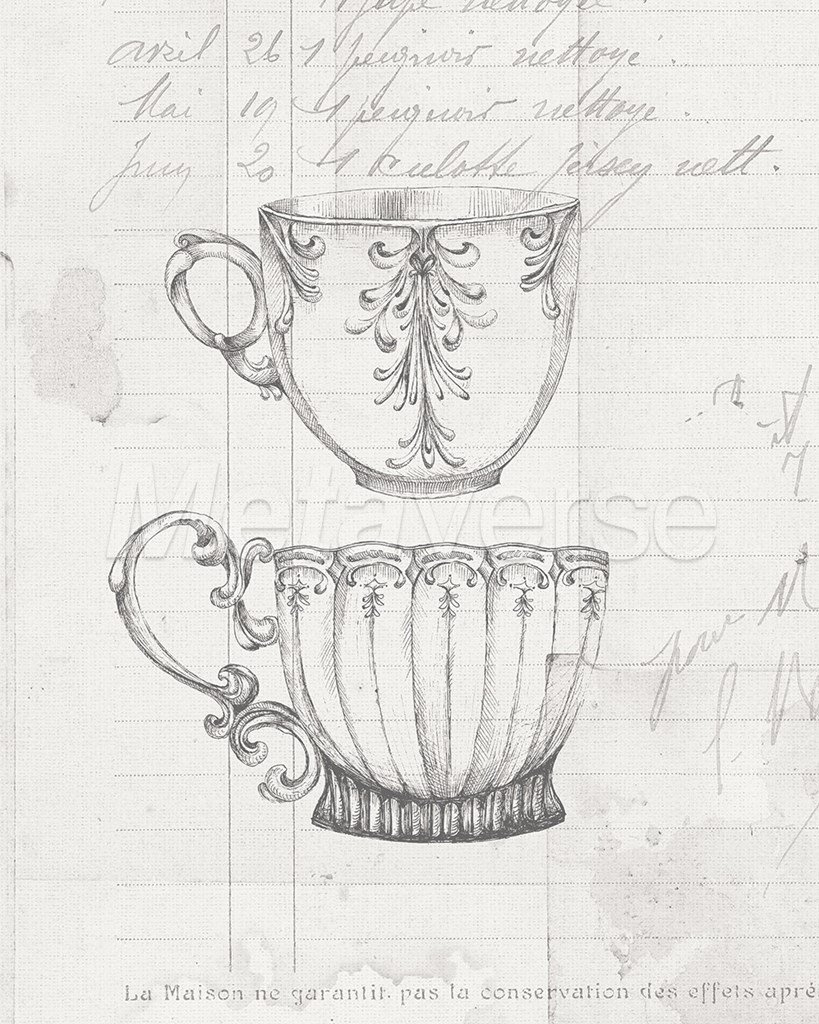 nettoyé
avril 26 1 peignoir nettoyé.
Mai 19 1 peignoir nettoyé.
Juin 20 1 culotte jersey nett.
Metaverse
pour M
La Maison ne garantit pas la conservation des effets apré